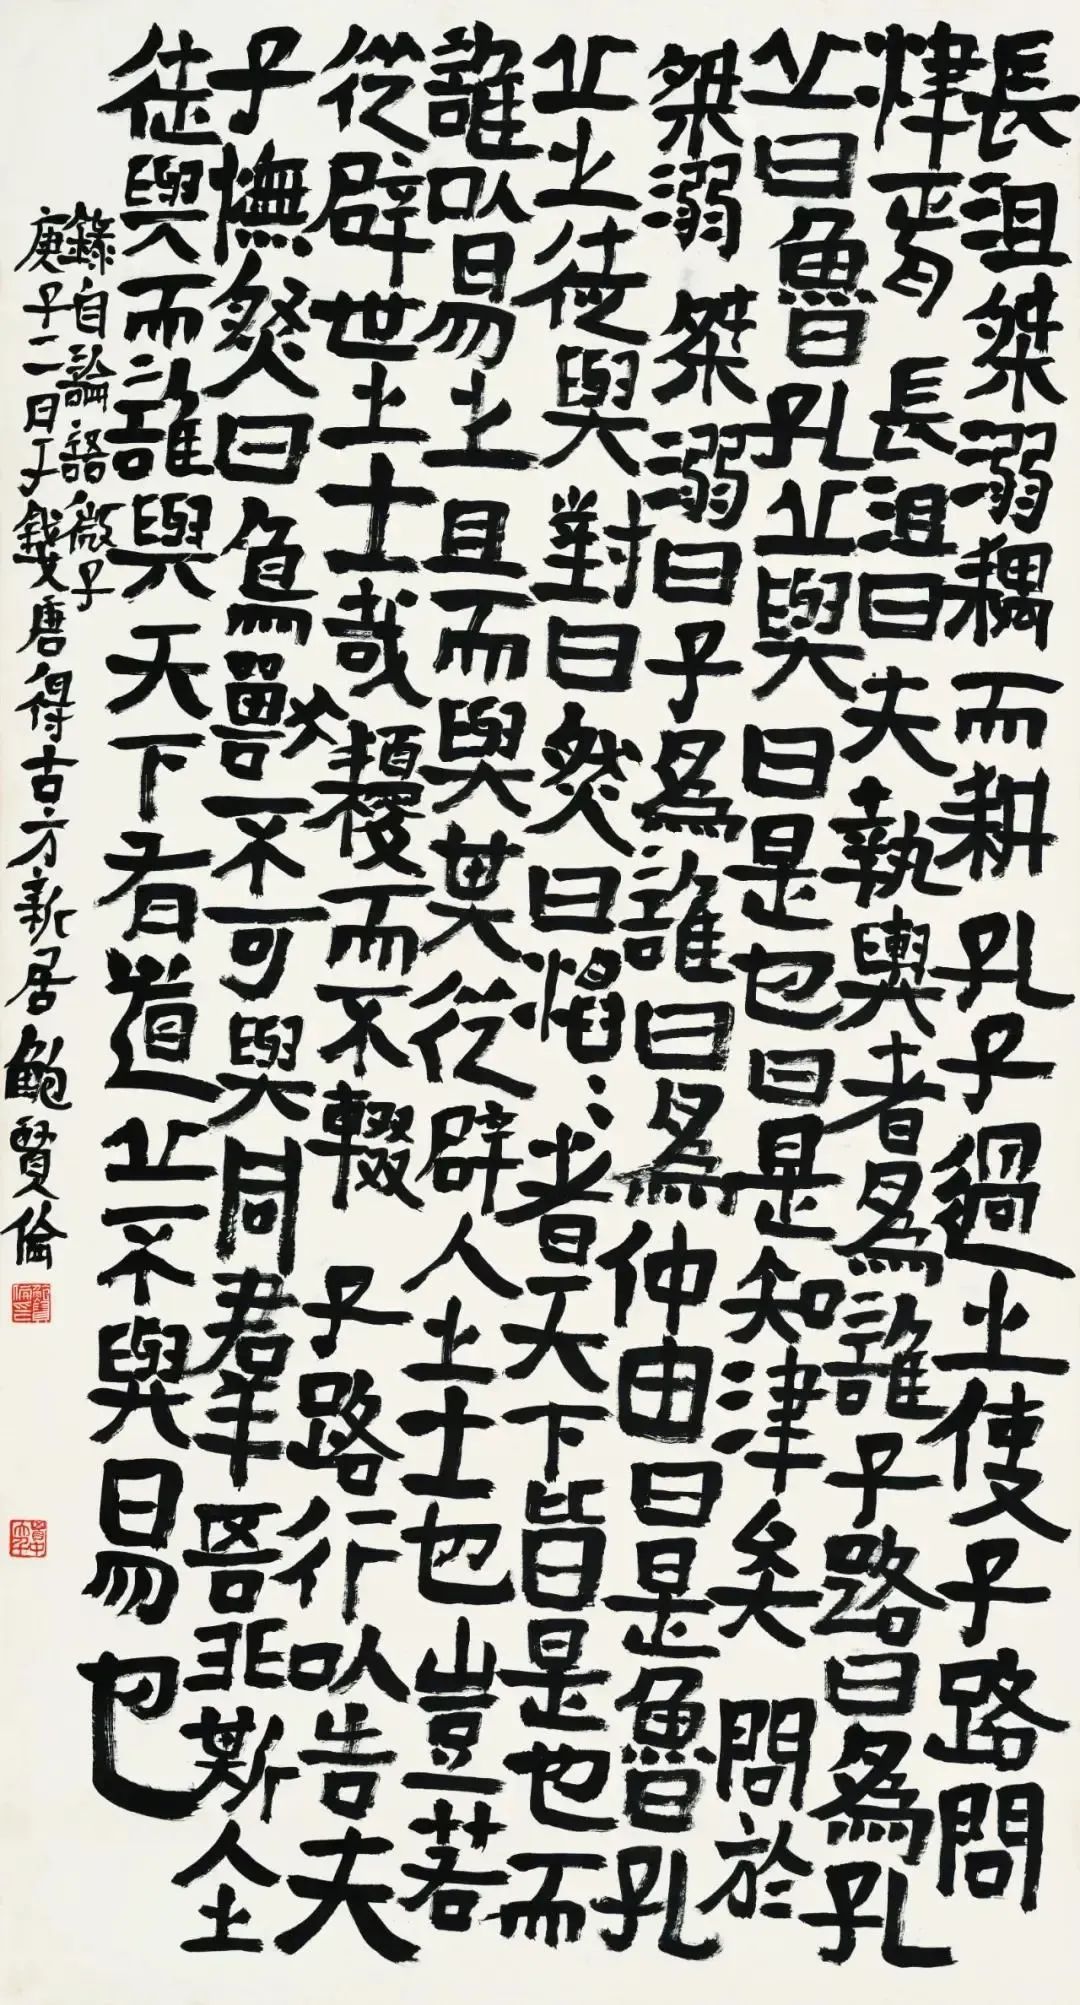 長沮桀溺耦而耕孔子過之使子路問
津焉長沮曰夫執輿者為誰子路曰為孔
丘曰魯孔丘與曰是也曰是知津矣問於
桀溺桀溺曰子為誰曰為仲由曰是魯孔
丘之徒與對曰然曰滔〻者天下皆是也而
誰以易之且而與其從辟人之士也豈若
從辟世之士哉耰而不輟子路行以告夫
子憮然曰鳥獸不可與同羣吾非斯人之
徒與而誰與天下有道丘不與易也
錄自論語微子
庚子二月于錢唐得古方新居鮑賢倫